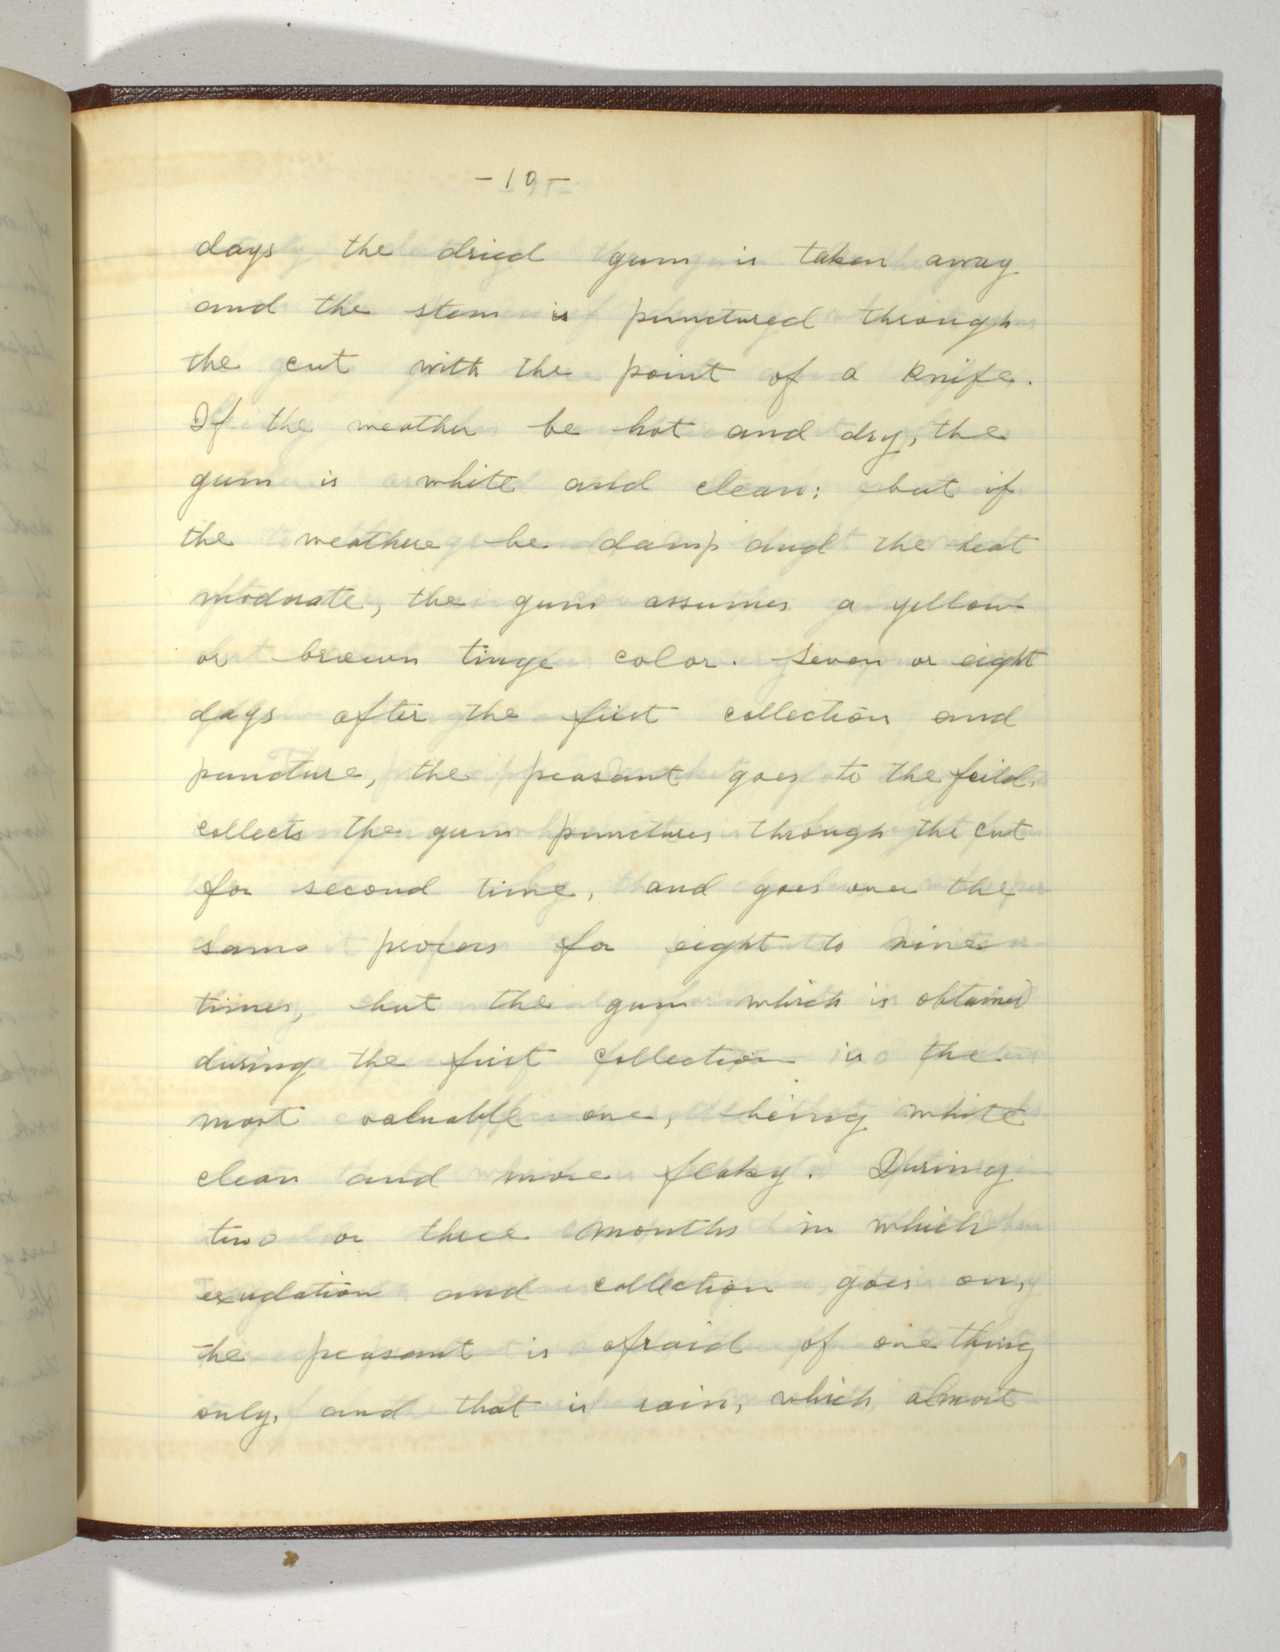 -10-
days the dried gum is taken away
and the stem is punctured through
the cut with the point of a knife.
If the weather be hot and dry, the
gum is white and clean; but if
the weathere be damp and the heat
moderate, the gum assumes a yellow
or brown tinge color. Seven or eight
days after the first collection and
puncture, the peasant goes to the feild,
collects the gum punctures through the cut
for second time, and goes over the
same process for eight to nine
times, but the gum which is obtained
during the first collection is the
most valuable one, being white
clean and more flaky. During
two or three months in which
exudation and collection goes on,
the peasant is afraid of one thing
only, and that is rain, which almost